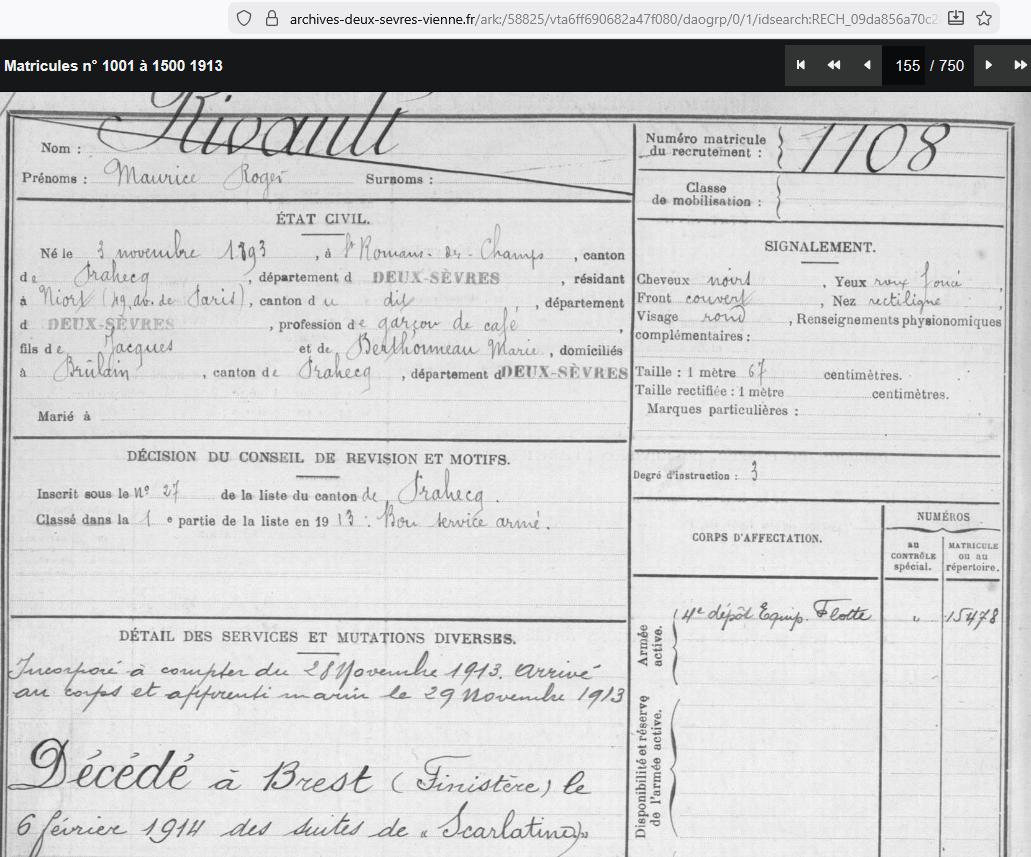 archives-deux-sevres-vienne.fr/ark:/58825/vta6ff690682a47f080/daogrp/0/1/idsearch:RECH_09da856a70c2
Matricules n° 1001 à 1500 1913
155 / 750
Nom : Rivault
Prénoms : Maurice Roger Surnoms :
Numéro matricule
du recrutement : 1108
Classe
de mobilisation :
ÉTAT CIVIL.
Né le 3 novembre 1893, à St Romans-des-Champs, canton
de Prahecq, département d DEUX-SÈVRES, résidant
à Niort (19, av. de Paris), canton d u dit, département
d DEUX-SÈVRES, profession de garçon de café,
fils de Jacques et de Berthonneau Marie, domiciliés
à Brûlain, canton de Prahecq, département d DEUX-SÈVRES
Marié à
SIGNALEMENT.
Cheveux noirs, Yeux roux foncé,
Front couvert, Nez rectiligne,
Visage rond, Renseignements physionomiques
complémentaires :
Taille : 1 mètre 67 centimètres.
Taille rectifiée : 1 mètre centimètres.
Marques particulières :
DÉCISION DU CONSEIL DE REVISION ET MOTIFS.
Inscrit sous le n° 27 de la liste du canton de Prahecq.
Classé dans la 1 e partie de la liste en 1913. Bon service armé.
Degré d'instruction : 3
CORPS D'AFFECTATION.
NUMÉROS
au
CONTRÔLE
spécial.
MATRICULE
ou au
répertoire.
Armée
active.
4e dépôt Equip. Flotte " 15478
Disponibilité et réserve
de l'armée active.
DÉTAIL DES SERVICES ET MUTATIONS DIVERSES.
Incorporé à compter du 28 Novembre 1913. Arrivé
au corps et apprenti marin le 29 Novembre 1913
Décédé à Brest (Finistère) le
6 février 1914 des suites de « Scarlatine »